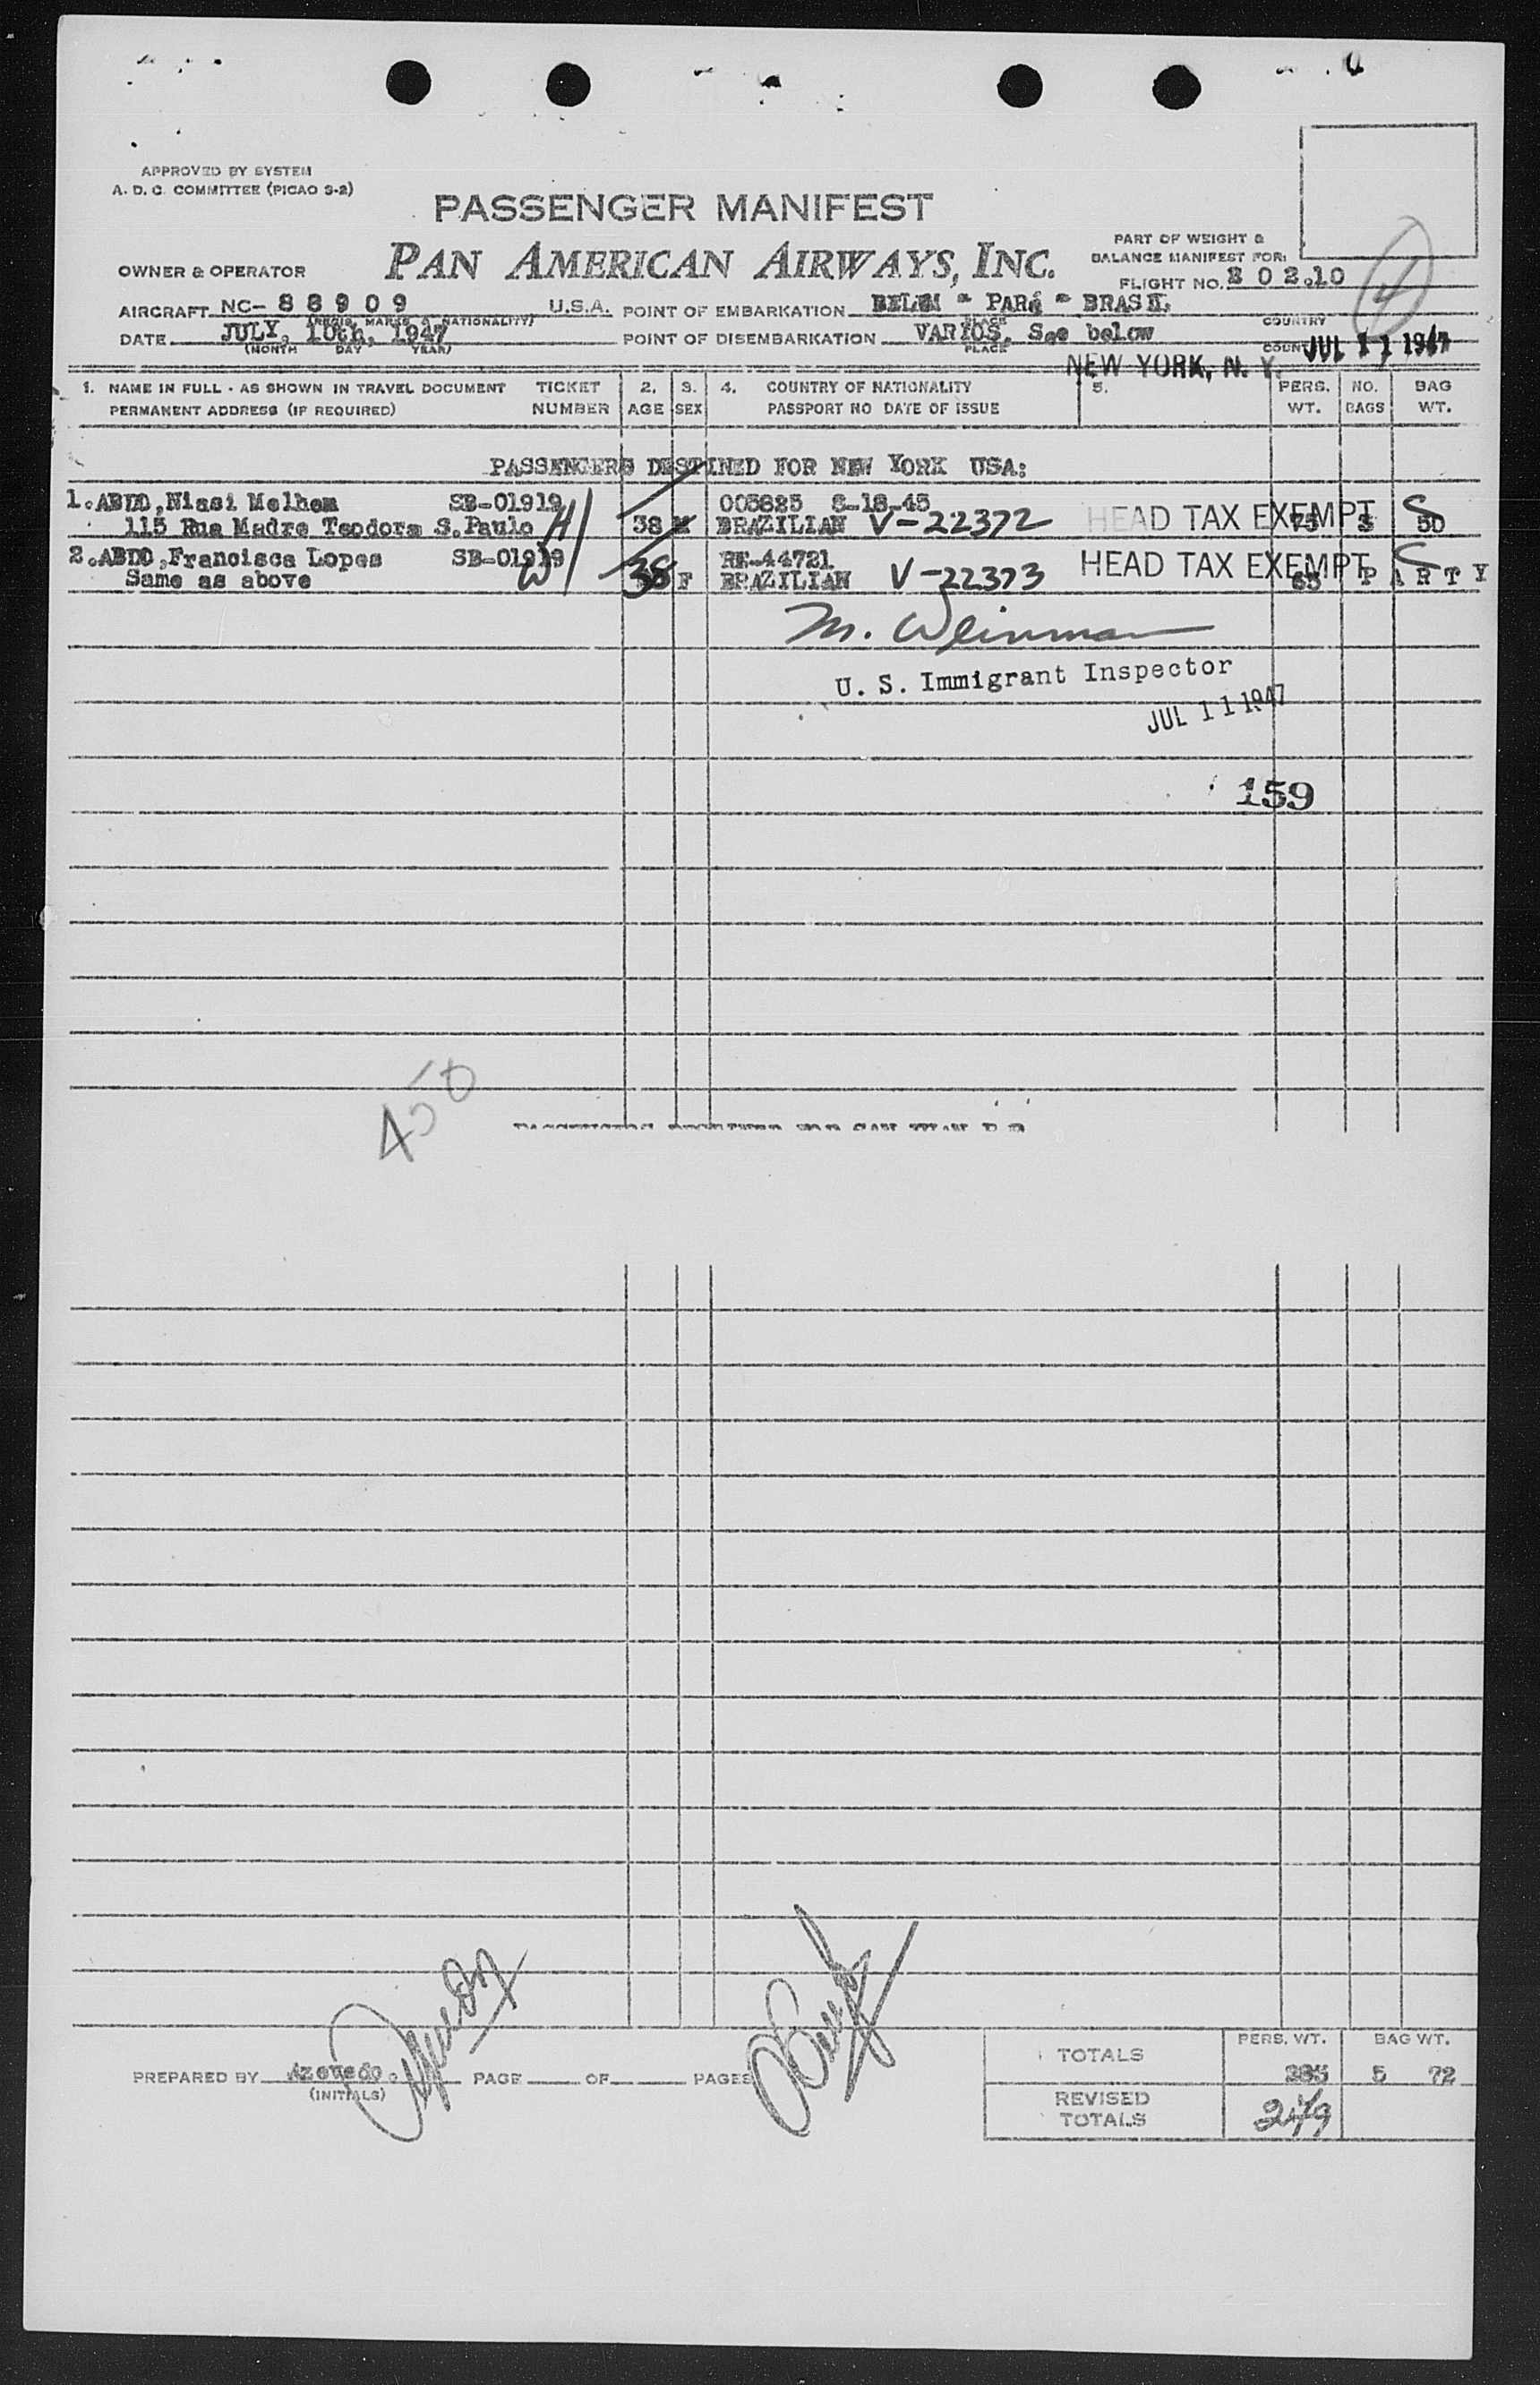 APPROVED BY SYSTEM
A. D. C. COMMITTEE (PICAO S-2)
PASSENGER MANIFEST
PAN AMERICAN AIRWAYS, INC.
OWNER & OPERATOR
PART OF WEIGHT &
BALANCE MANIFEST FOR:
FLIGHT NO. 202.10
4
AIRCRAFT NC-88909 U.S.A. POINT OF EMBARKATION BELEM - PARá - BRASIL
(REGIS. MARKS & NATIONALITY) PLACE COUNTRY
DATE JULY, 10th, 1947 POINT OF DISEMBARKATION VARIOS, See below
(MONTH DAY YEAR) PLACE
NEW YORK, N. Y. JUL 11 1947
1. NAME IN FULL - AS SHOWN IN TRAVEL DOCUMENT TICKET 2. 3. 4. COUNTRY OF NATIONALITY 5. PERS. NO. BAG
PERMANENT ADDRESS (IF REQUIRED) NUMBER AGE SEX PASSPORT NO DATE OF ISSUE WT. BAGS WT.
PASSENGERS DESTINED FOR NEW YORK USA:
1. ABDO, Nissi Melhem SB-01919 005825
115 Rua Madre Teodora S. Paulo H 38 M BRAZILIAN V-22372 HEAD TAX EXEMPT 75 3 50
2. ABDO, Francisca Lopes SB-01919 RE-44721
Same as above W 38 F BRAZILIAN V-22373 HEAD TAX EXEMPT 65 PARTY
M. Weinman
U. S. Immigrant Inspector
JUL 11 1947
159
450
PREPARED BY Azevedo. PAGE OF PAGES
(INITIALS)
PERS. WT. BAG WT.
TOTALS 5 72
REVISED
TOTALS 249